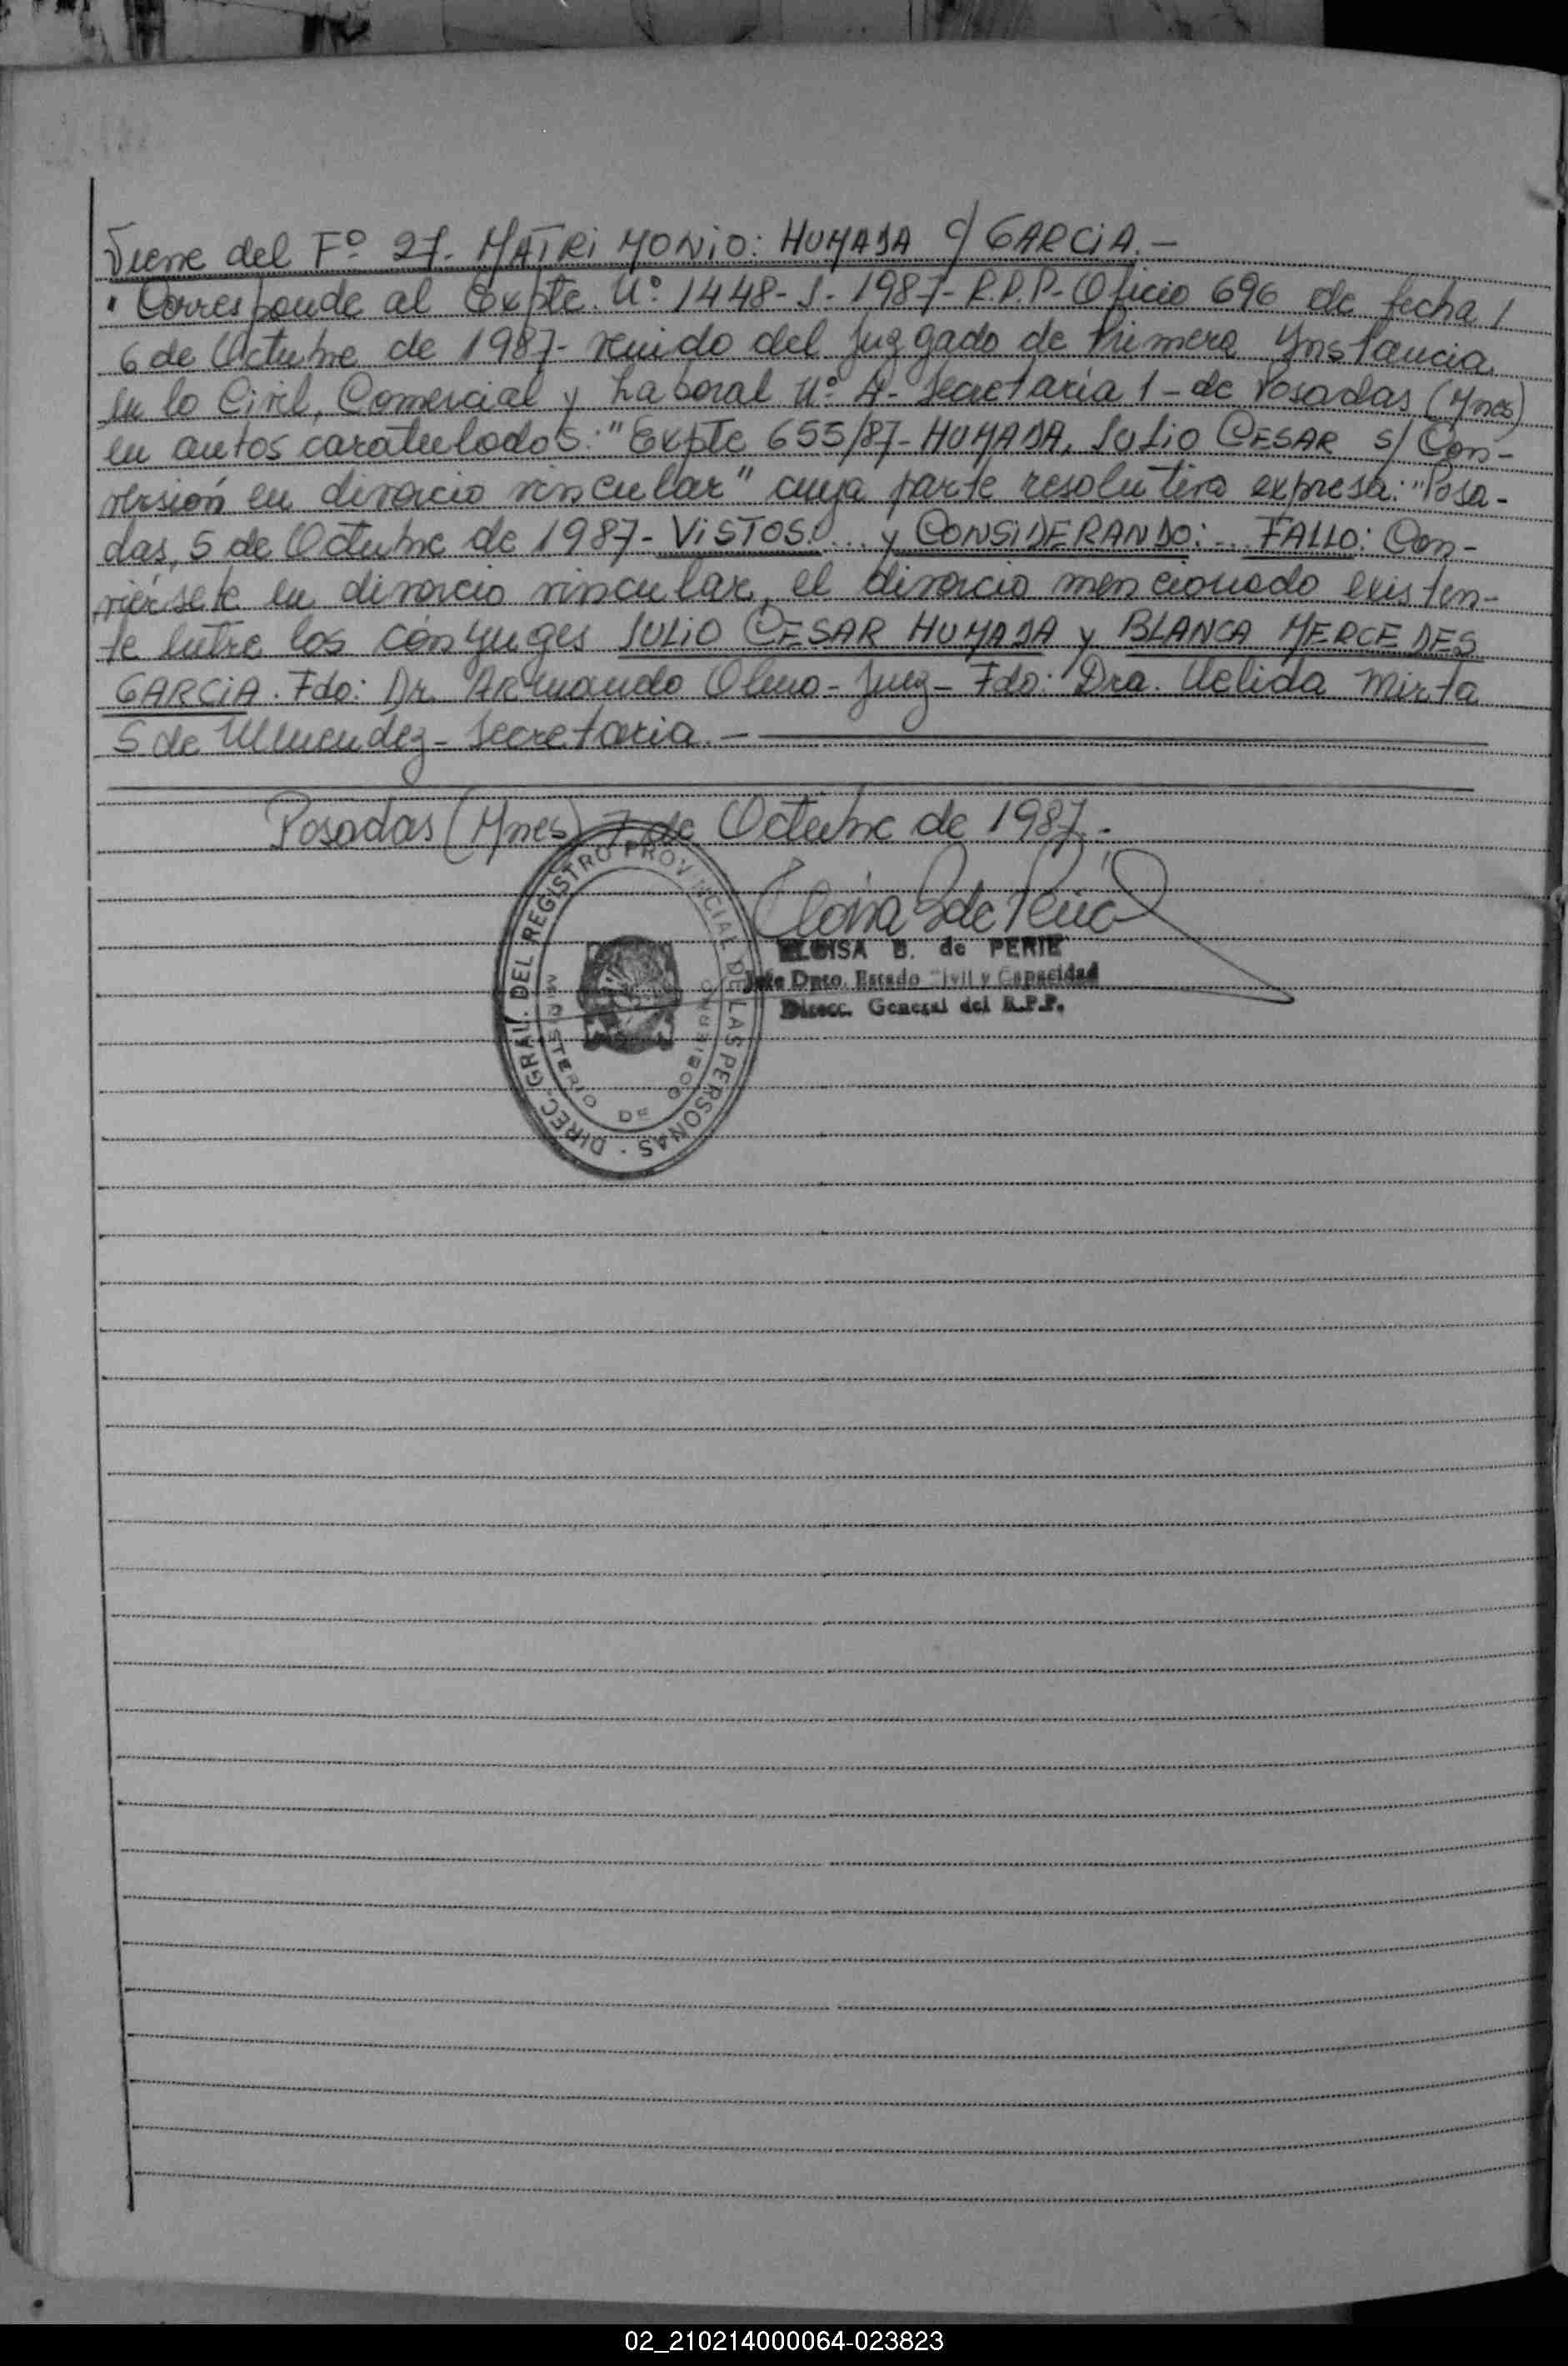 Viene del Fº 27. MATRIMONIO: HUMADA c/ GARCIA.-
" Corresponde al Expte. Nº 1448-J-1987- R.P.P- Oficio 696 de fecha
6 de Octubre de 1987- venido del Juzgado de Primera Ynstancia
en lo Civil, Comercial y Laboral Nº 4- Secretaría 1 - de Posadas (Mnes)
en autos caratulados: "Expte 655/87- HUMADA, JULIO CESAR s/ Con-
versión en divorcio vincular" cuya parte resolutiva expresa: "Posa-
das, 5 de Octubre de 1987- VISTOS:... y CONSIDERANDO:... FALLO: Con-
viérsete en divorcio vincular, el divorcio mencionado existen-
te entre los cónyuges JULIO CESAR HUMADA y BLANCA MERCEDES
GARCIA. Fdo: Dr. Armando Olmo- Juez- Fdo: Dra. Nelida Mirta
S de Mmendez- Secretaria.-
Posadas (Mnes) 7 de Octubre de 1987.-
DIREC. GRAL. DEL REGISTRO PROVINCIAL DE LAS PERSONAS
MINISTERIO DE GOBIERNO
ELOISA B. de PERIE
Jefe Dpto. Estado Civil y Capacidad
Direcc. General del R.P.P.
02_210214000064-023823